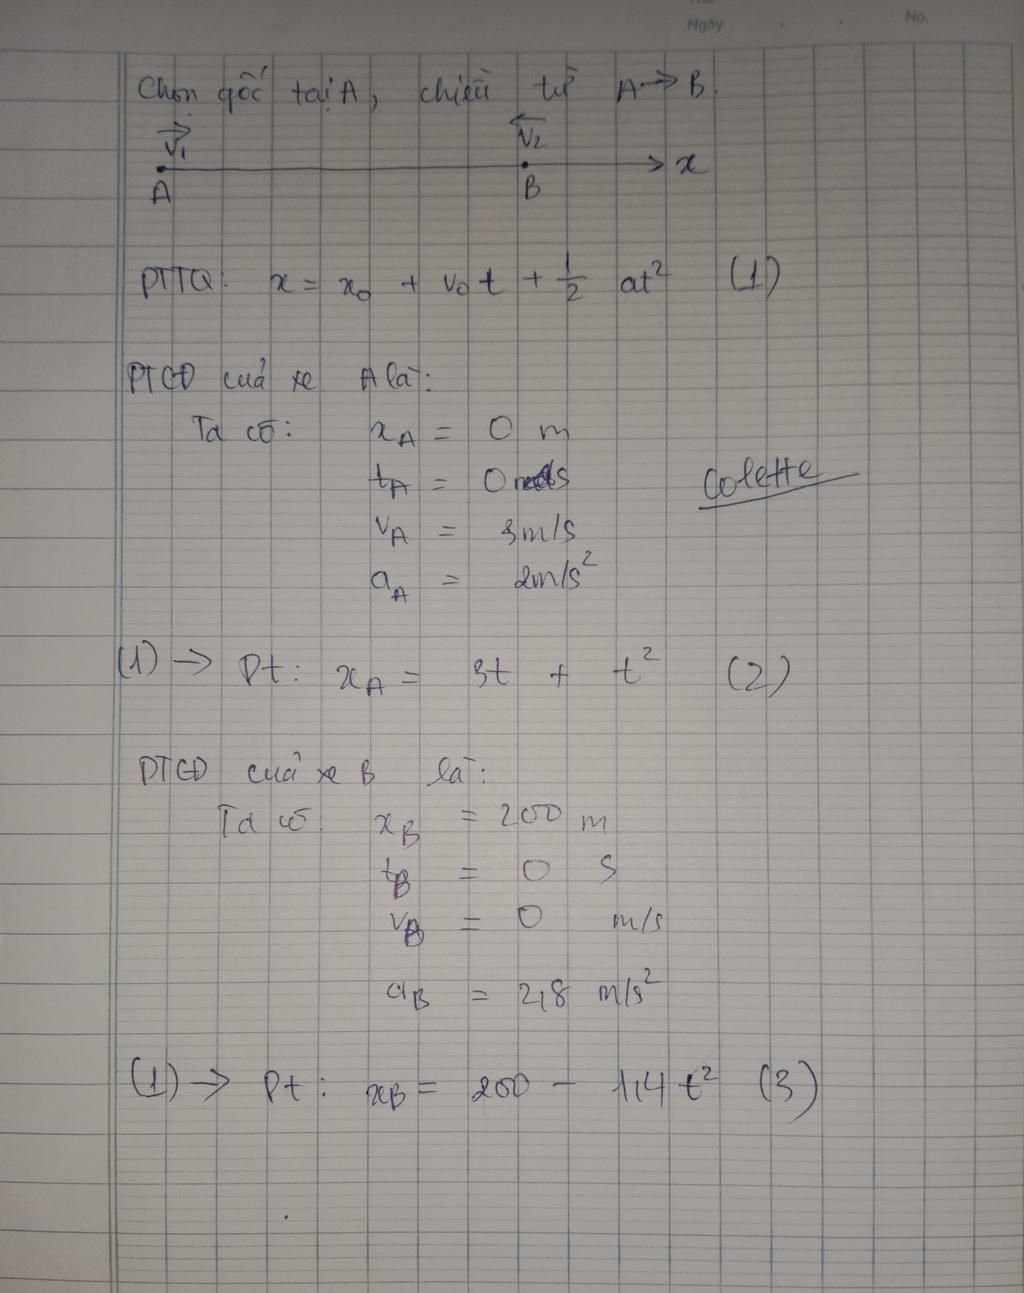 Ngày
No.
Chọn gốc tại A, chiều từ A → B.
v₁ v₂
A B x
PTTQ: x = x₀ + v₀t + 1/2 at² (1)
PTCĐ cuả xe A là:
Ta có: xA = 0 m
tA = 0 s
Colette
vA = 3m/s
aA = 2m/s²
(1) → Pt: xA = 3t + t² (2)
PTCĐ cuả xe B là:
Ta có xB = 200 m
tB = 0 s
vB = 0 m/s
aB = 2,8 m/s²
(1) → Pt: xB = 200 - 1,4 t² (3)